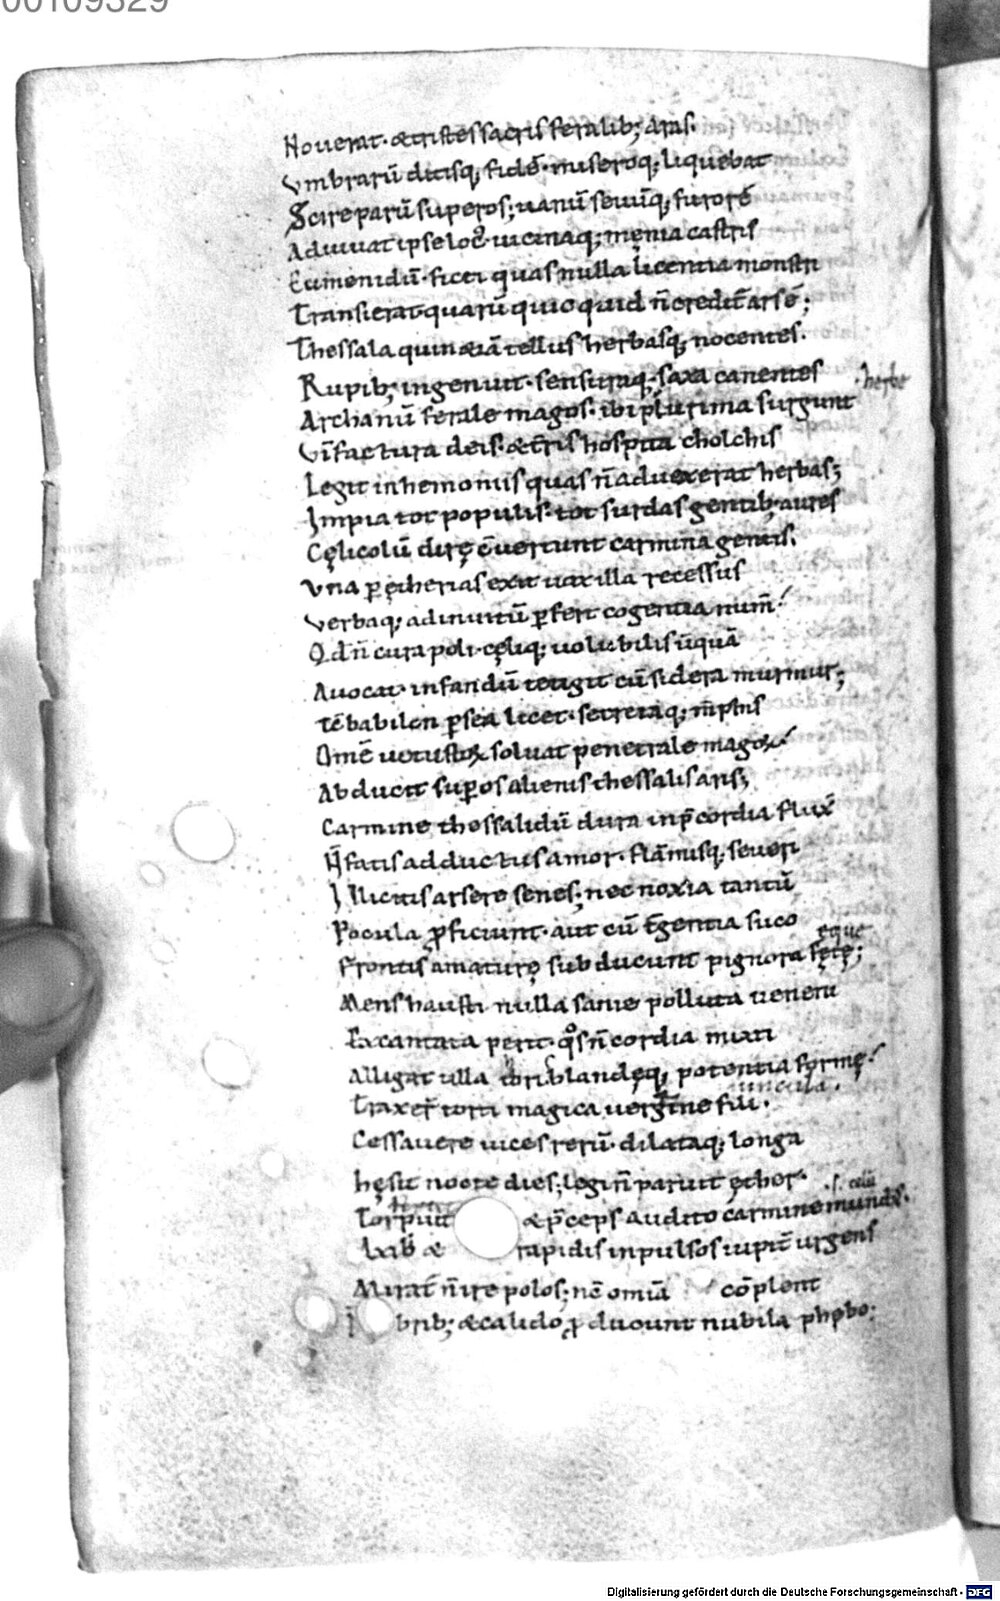 00109329
Noverat. & tristes sacris feralib; aras.
Vmbrarū ditisq; fidē. miseroq; liquebat
Scire parū superos; uanū sevūq; furorē
Adiuuat ipse locꝰ. uicinaq; męnia castris
Eumenidū. ficti quas nulla licentia monstri
Transierat quarū quicquid n̄ credit̄ ars ē;
Thessala quin &iā tellus herbasq; nocentes.
Rupib; ingenuit. sensuraq; saxa canentes
.herbe
Archanū ferale magos. ibi plurima surgunt
Vī factura deis. & t̄ris hospita cholchis
Legit in hemoniis quas n̄ aduexerat herbas;
Impia tot populis. tot surdas gentib; aures
Cęlicolū dirę c̄uertunt carmina gentis.
Vna p̲ ętherias exit uox illa recessus
Verbaq; ad inuitū p̲fert cogentia num̄.
Qd n̄ cura poli. cęliq; uolubilis ūquā
Auocat. infandū tetigit cū sidera murmur;
Tē babilon p̲sea licet. secretaq; m̄phis
Omē uetustoꝝ soluat penetrale magoꝝ.
Abducit sup̲os alienis thessalis aris;
Carmine thessalidū dura in p̄cordia fluxit
N̄ fatis adductus amor. flāmisq; seueri
Illicitis arsere senes; nec noxia tantū
Pocula p̲ficiunt. aut cū t̄gentia suco
eque
Frontis amaturę subducunt pignora fętę;
Mens hausti nulla sanie polluta ueneni
Excantata perit. qͦs n̄ cordia mixti
Alligat ulla tori. blandęq; potentia formę.
Traxer̄ torti magica uergīne fili.
Cessauere uices rerū. dilataq; longa
hęsit nocte dies; legi n̄ paruit ęther.
.s. celū
Torpuit & p̄ceps audito carmine mundus.
Axib; & rapidis inpulsos iupit̄ urgens
Mirat̄ n̄ ire polos; nc̄ omīa cōplent
Imbrib; & calido p̲ducunt nubila phębo;
Digitalisierung gefördert durch die Deutsche Forschungsgemeinschaft - DFG